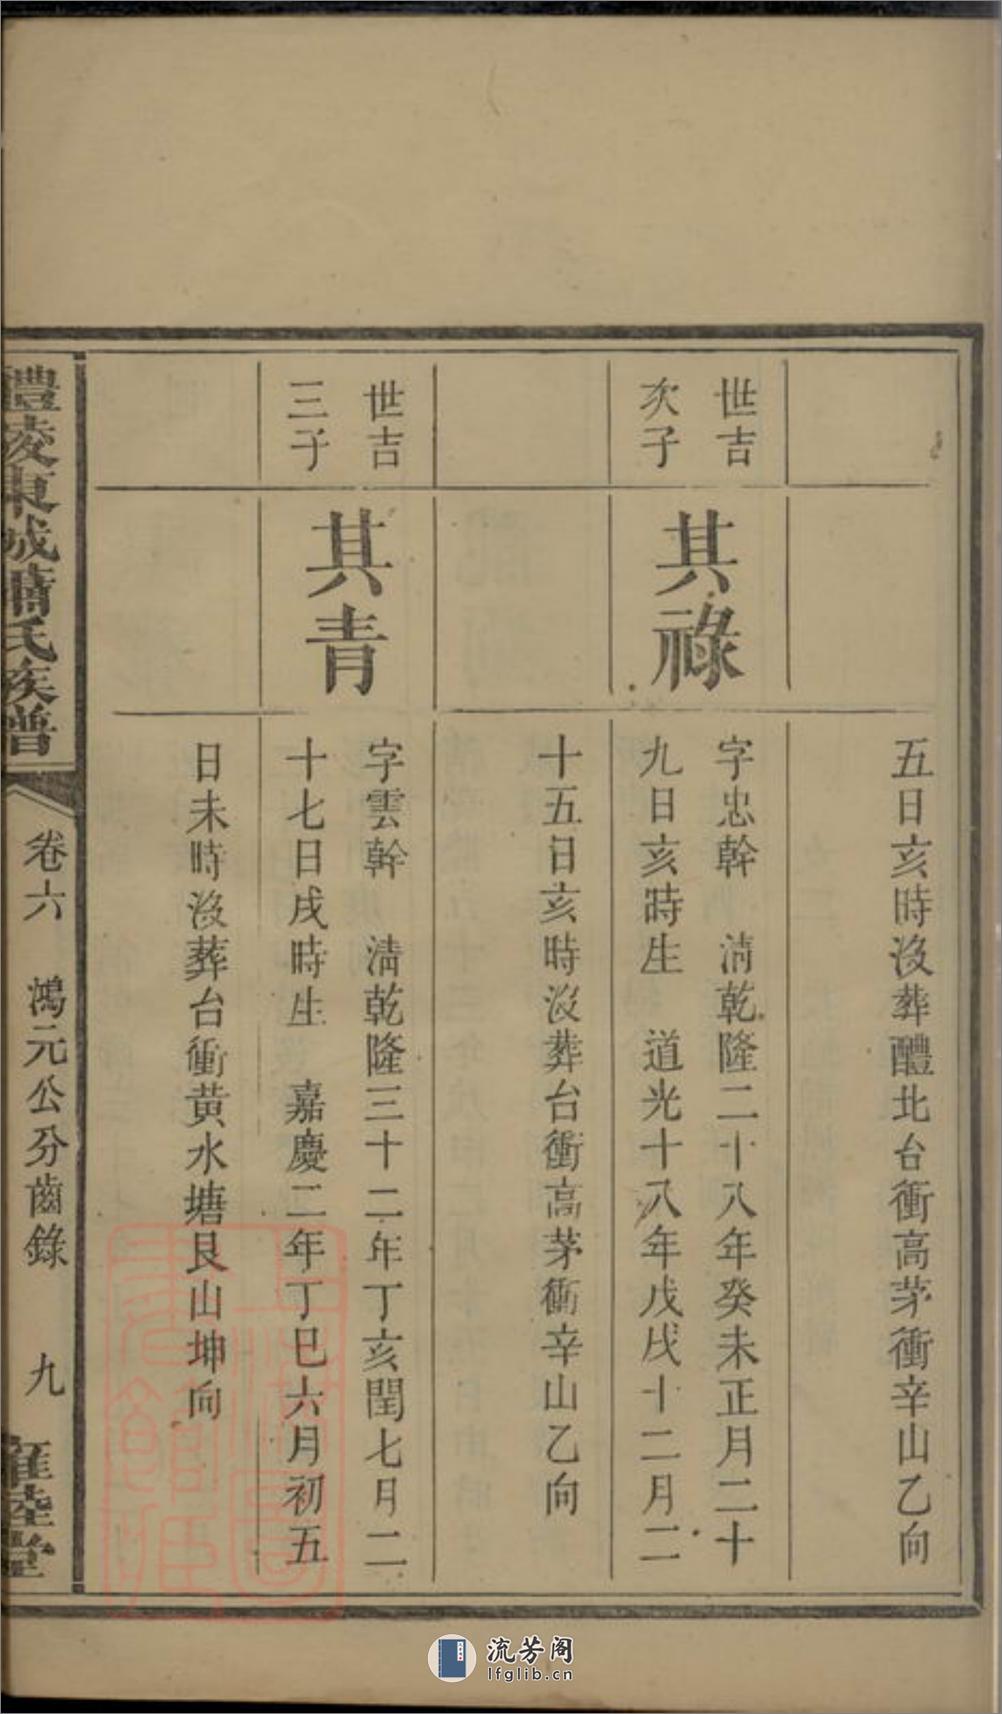 五日亥時没葬醴北台衝高茅衝辛山乙向
世吉
次子
其祿
字忠幹 清乾隆二十八年癸未正月二十
九日亥時生 道光十八年戊戌十二月二
十五日亥時没葬台衝高茅衝辛山乙向
世吉
三子
其青
字雲幹 清乾隆三十二年丁亥閏七月二
十七日戌時生 嘉慶二年丁巳六月初五
日未時没葬台衝黄水塘艮山坤向
醴陵東城蕭氏族譜
卷六 鴻元公分齒錄 九
睦堂
流芳阁
lfglib.cn